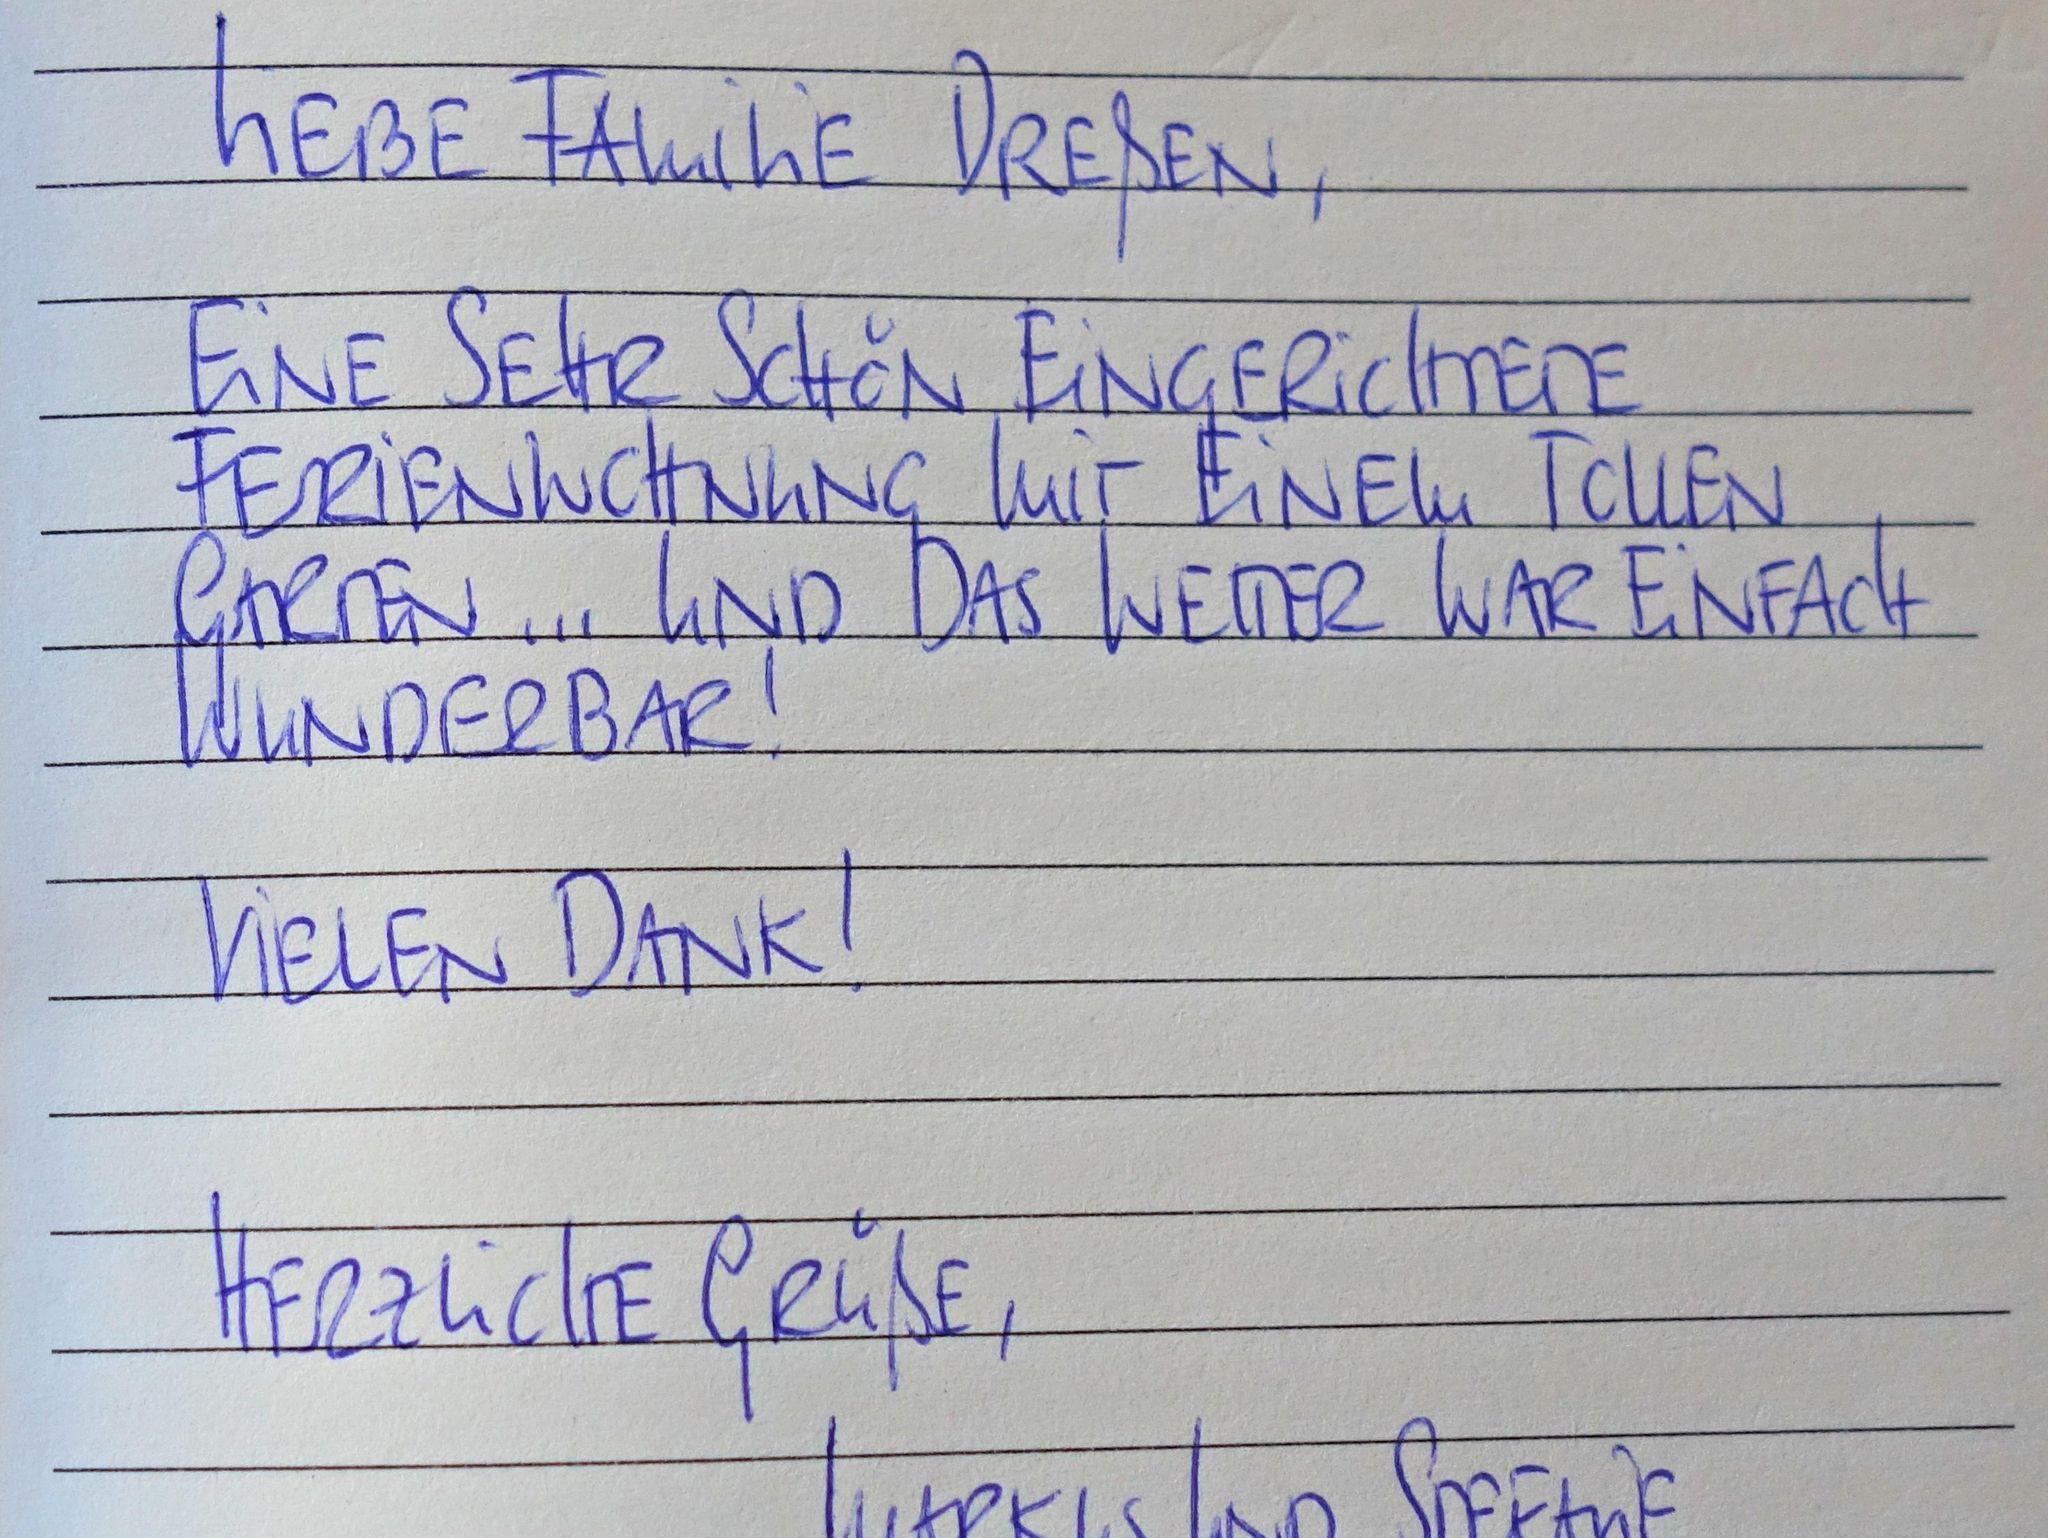 Liebe Familie Dreßen,
Eine sehr schön eingerichtete
Ferienwohnung mit einem tollen
Garten ... und das Wetter war einfach
wunderbar!
Vielen Dank!
Herzliche Grüße,
Markus und Stefanie